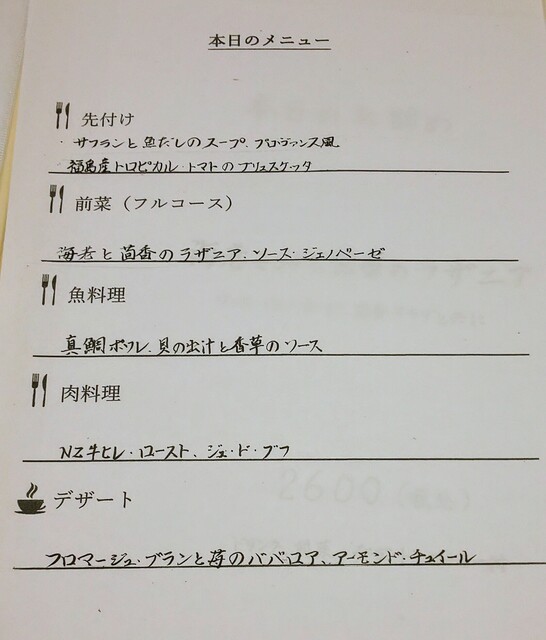 本日のメニュー
先付け
・サフランと魚だしのスープ、プロヴァンス風
福島産トロピカル・トマトのブリュスケッタ
前菜（フルコース）
海老と茴香のラザニア、ソース・ジェノベーゼ
魚料理
真鯛ポワレ、貝の出汁と香草のソース
肉料理
NZ牛ヒレ・ロースト、ジュ・ド・ブフ
デザート
フロマージュ・ブランと苺のババロア、アーモンド・チュイール
2600